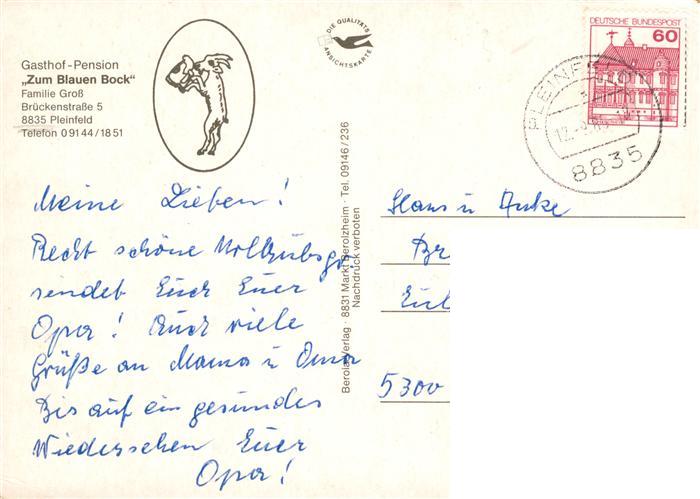 Gasthof-Pension
„Zum Blauen Bock"
Familie Groß
Brückenstraße 5
8835 Pleinfeld
Telefon 09144/1851
DIE QUALITÄTS
ANSICHTSKARTE
DEUTSCHE BUNDESPOST
60
PLEINFELD
8835
Berolina-Verlag · 8831 Markt Berolzheim · Tel. 09146/236
Nachdruck verboten
Meine Lieben!
Recht schöne
sendet Euch Euer
Opa! Auch viele
Grüße an Mama u Oma
Bis auf ein gesundes
Wiedersehen Euer
Opa!
Hans u Anke
Br
5300